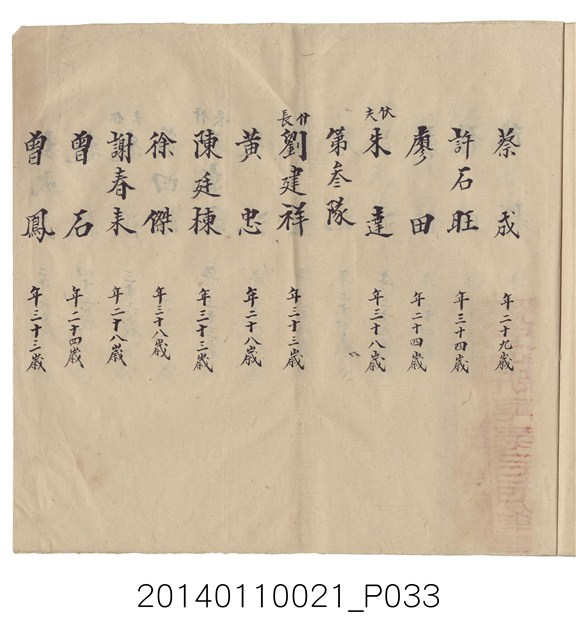 蔡成 年二十九歲
許石旺 年三十四歲
廖田 年二十四歲
伙夫 朱達 年三十八歲
第叁隊
什長 劉建祥 年三十三歲
黃忠 年二十八歲
陳廷棟 年三十三歲
徐傑 年三十八歲
謝春来 年二十八歲
曾石 年二十四歲
曾鳳 年三十三歲
20140110021_P033